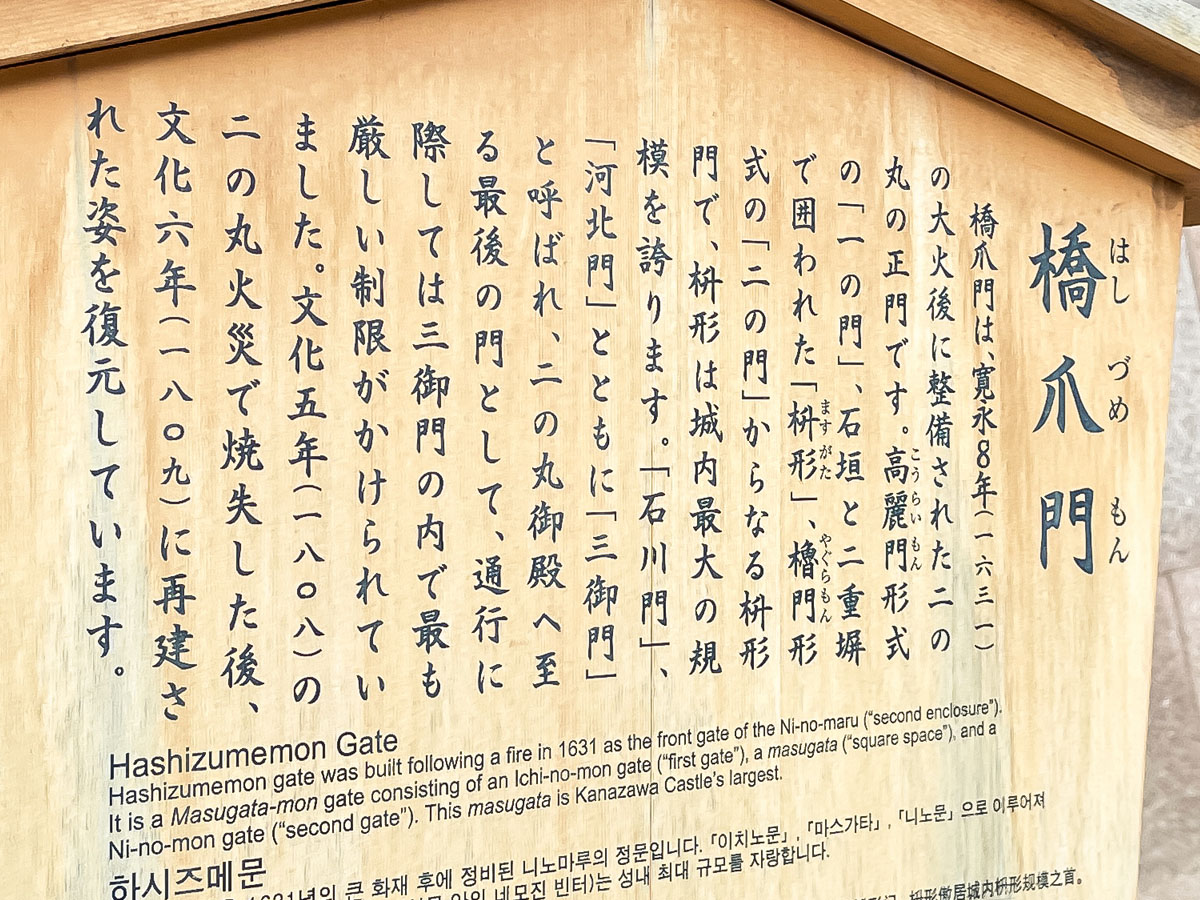 橋爪門
はし づめ もん
橋爪門は、寛永8年(一六三一)
の大火後に整備された二の
丸の正門です。高麗門形式
こうらいもん
の「一の門」、石垣と二重塀
で囲われた「枡形」、櫓門形
ますがた やぐらもん
式の「二の門」からなる枡形
門で、枡形は城内最大の規
模を誇ります。「石川門」、
「河北門」とともに「三御門」
と呼ばれ、二の丸御殿へ至
る最後の門として、通行に
際しては三御門の内で最も
厳しい制限がかけられてい
ました。文化五年(一八〇八)の
二の丸火災で焼失した後、
文化六年(一八〇九)に再建さ
れた姿を復元しています。
Hashizumemon Gate
Hashizumemon gate was built following a fire in 1631 as the front gate of the Ni-no-maru (“second enclosure”).
It is a Masugata-mon gate consisting of an Ichi-no-mon gate (“first gate”), a masugata (“square space”), and a
Ni-no-mon gate (“second gate”). This masugata is Kanazawa Castle’s largest.
하시즈메문
1631년의 큰 화재 후에 정비된 니노마루의 정문입니다. 「이치노문」, 「마스가타」, 「니노문」으로 이루어져
네모진 빈터)는 성내 최대 규모를 자랑합니다.
枡形傲居城内枡形规模之首。